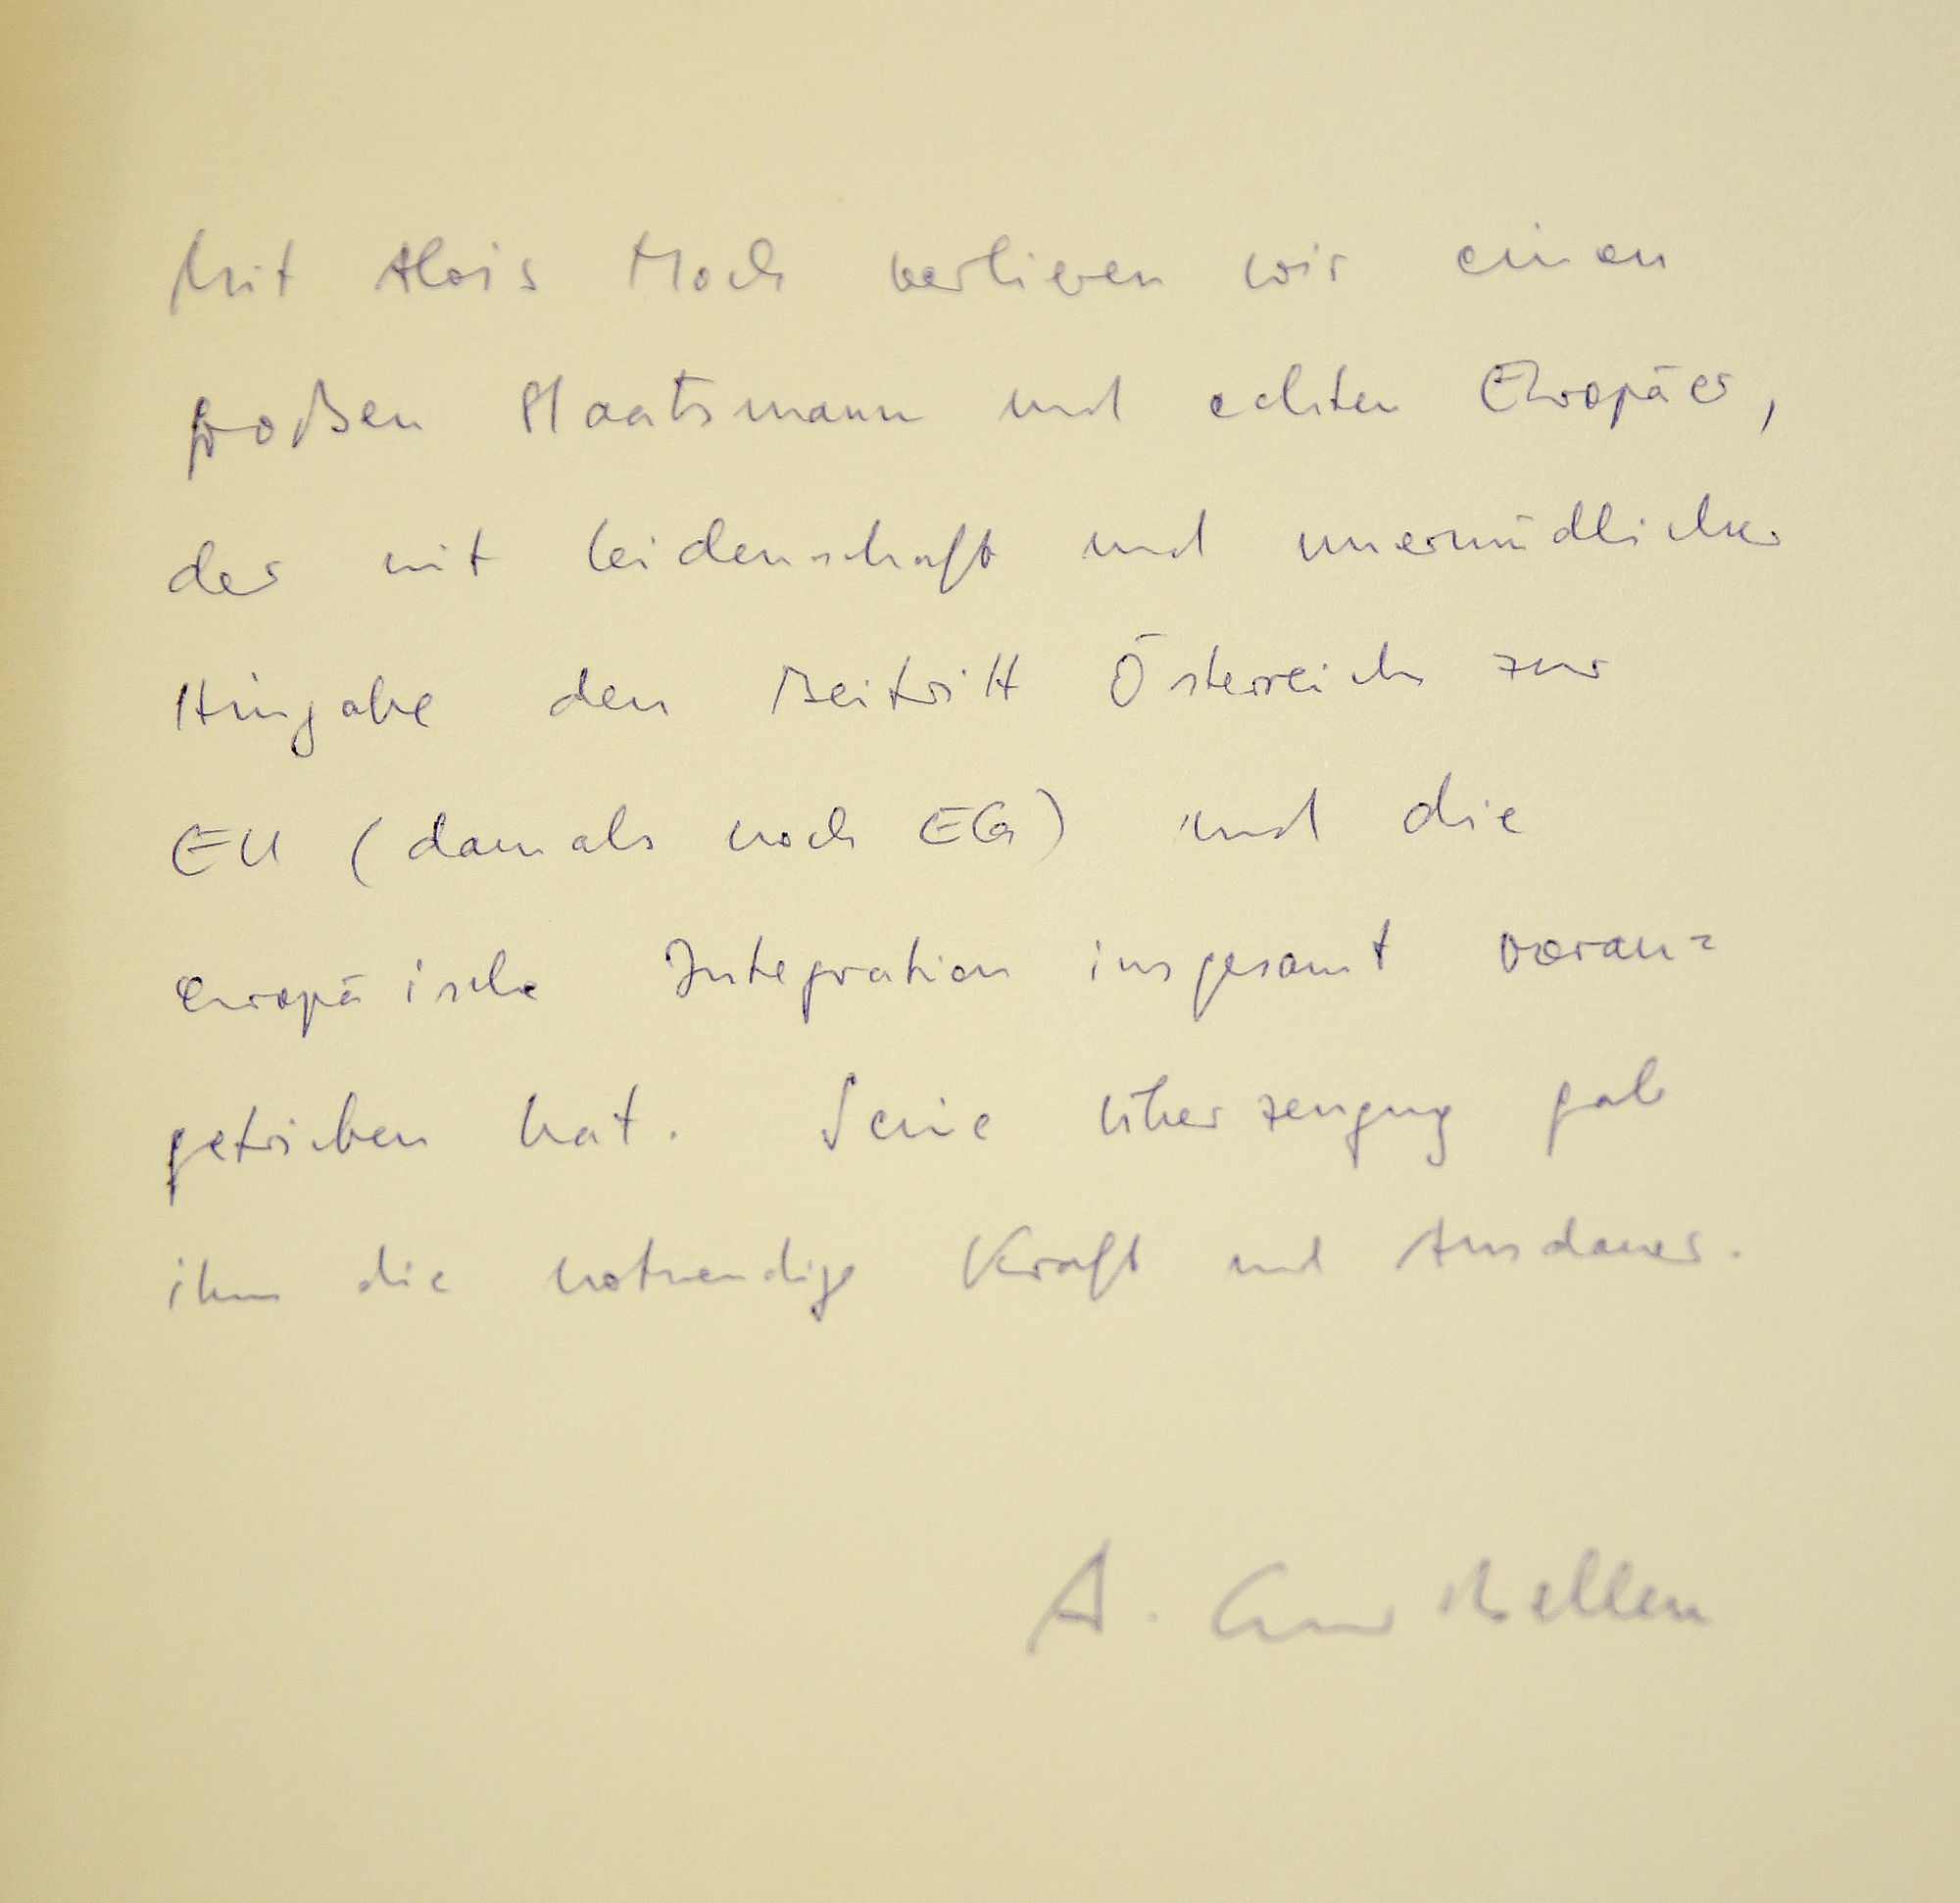 Mit Alois Mock verlieren wir einen
großen Staatsmann und echten Europäer,
der mit Leidenschaft und unermüdlicher
Hingabe den Beitritt Österreichs zur
EU (damals noch EG) und die
europäische Integration insgesamt voran=
getrieben hat. Seine Überzeugung gab
ihm die notwendige Kraft und Ausdauer.
A. Van der Bellen